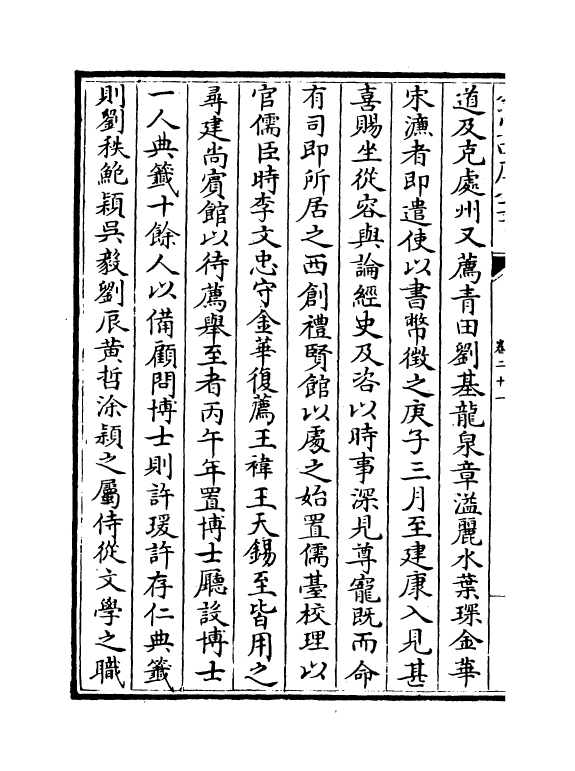 卷二十一
道及克處州又薦青田劉基龍泉章溢麗水葉琛金華
宋濂者即遣使以書幣徵之庚子三月至建康入見甚
喜賜坐從容與論經史及咨以時事深見尊寵既而命
有司即所居之西創禮賢館以處之始置儒臺校理以
官儒臣時李文忠守金華復薦王禕王天錫至皆用之
尋建尚賓館以待薦舉至者丙午年置博士廳設博士
一人典籤十餘人以備顧問博士則許瑗許存仁典籤
則劉秩鮑穎吳毅劉辰黄哲涂穎之屬侍從文學之職